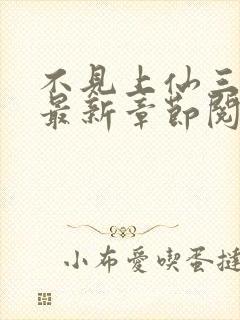 不見上仙三
最新章節閱
小布愛喫蛋撻